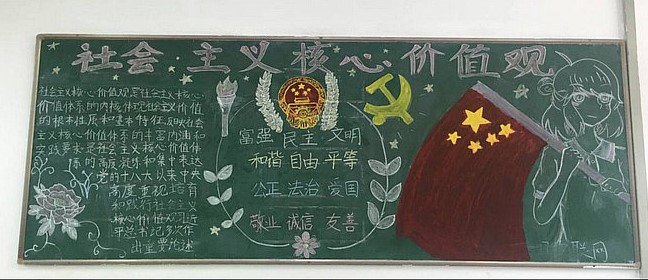 社会主义核心价值观
社会主义核心价值观是社会主义核心
价值体系的内核,体现社会主义核心价值
的根本性质和基本特征,反映社会
主义核心价值体系的丰富内涵和
实践要求,是社会主义核心价值体
系的高度凝练和集中表达
党的十八大以来中央
高度重视培育
和践行社会主义
核心价值观,习近
平总书记多次作
出重要论述
富强 民主 文明
和谐 自由 平等
公正 法治 爱国
敬业 诚信 友善